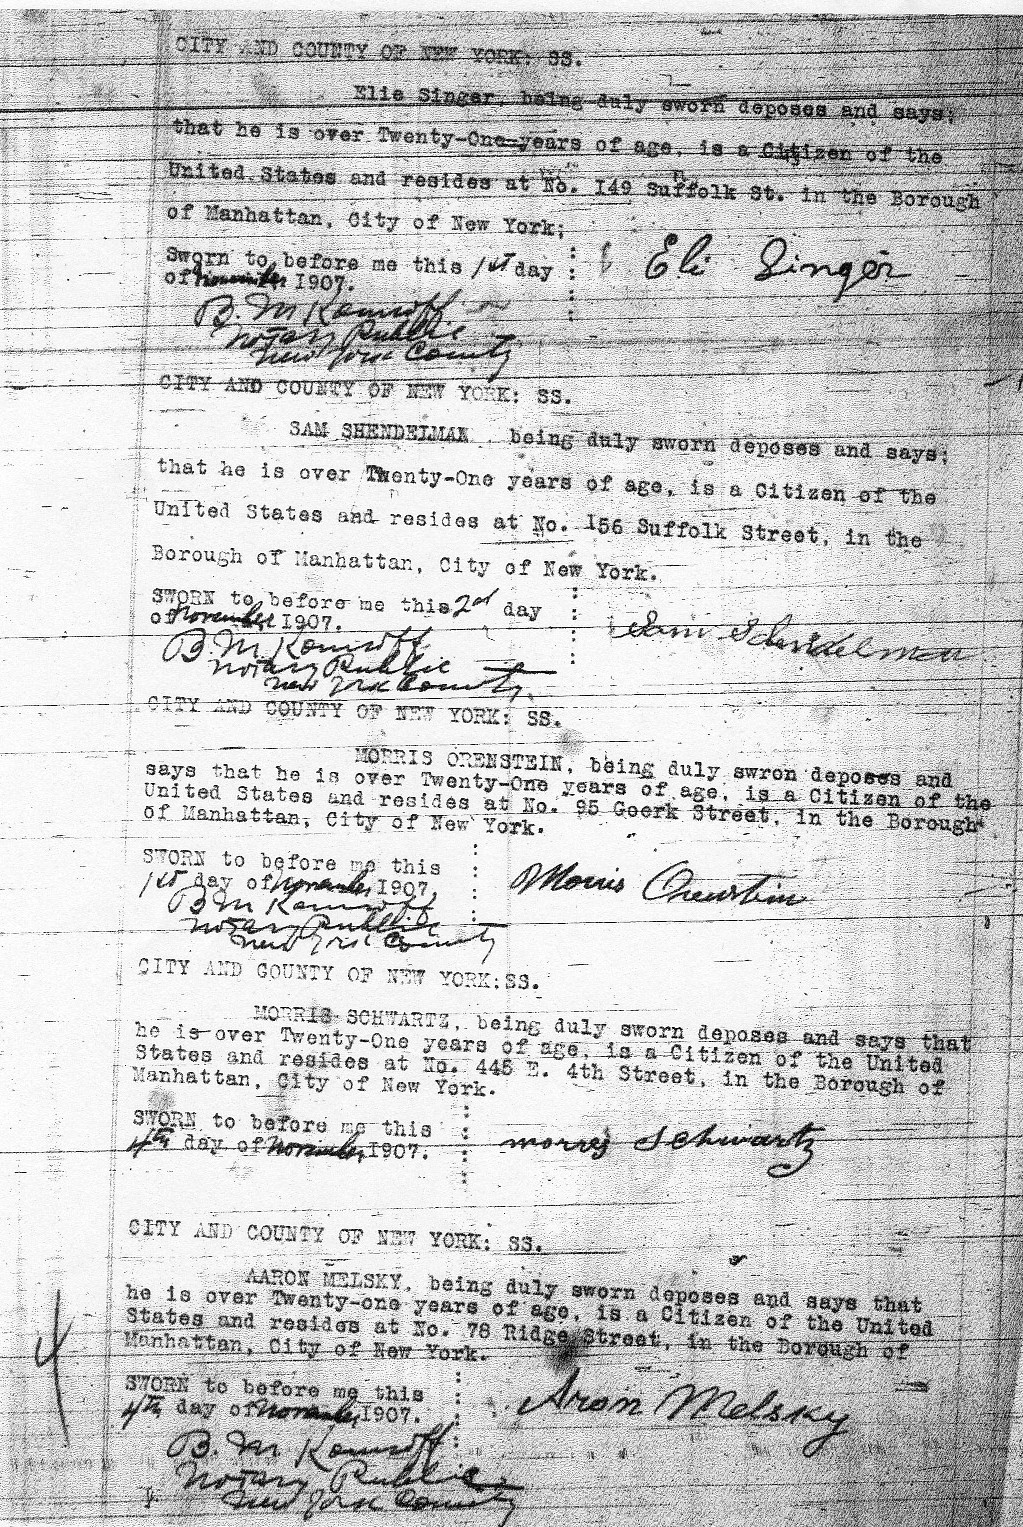 CITY AND COUNTY OF NEW YORK: SS.
Elie Singer, being duly sworn deposes and says;
that he is over Twenty-One years of age, is a Citizen of the
United States and resides at No. 149 Suffolk St. in the Borough
of Manhattan, City of New York;
Sworn to before me this 1st day
of November 1907.
Eli Singer
B. M.
Notary Public
New York County
CITY AND COUNTY OF NEW YORK: SS.
SAM SHENDELMAN, being duly sworn deposes and says;
that he is over Twenty-One years of age, is a Citizen of the
United States and resides at No. 156 Suffolk Street, in the
Borough of Manhattan, City of New York.
SWORN to before me this 2nd day
of November 1907.
Sam
B. M.
Notary Public
New York County
CITY AND COUNTY OF NEW YORK: SS.
MORRIS ORENSTEIN, being duly swron deposes and
says that he is over Twenty-One years of age, is a Citizen of the
United States and resides at No. 95 Goerk Street, in the Borough
of Manhattan, City of New York.
SWORN to before me this
1st day of November 1907.
Morris Orenstein
B. M.
Notary Public
New York County
CITY AND COUNTY OF NEW YORK:SS.
MORRIS SCHWARTZ, being duly sworn deposes and says that
he is over Twenty-One years of age, is a Citizen of the United
States and resides at No. 445 E. 4th Street, in the Borough of
Manhattan, City of New York.
SWORN to before me this
4th day of November 1907.
morris Schwartz
CITY AND COUNTY OF NEW YORK: SS.
AARON MELSKY, being duly sworn deposes and says that
he is over Twenty-one years of age, is a Citizen of the United
States and resides at No. 78 Ridge Street, in the Borough of
Manhattan, City of New York.
SWORN to before me this
4th day of November 1907.
Aron Melsky
B. M.
Notary Public
New York County